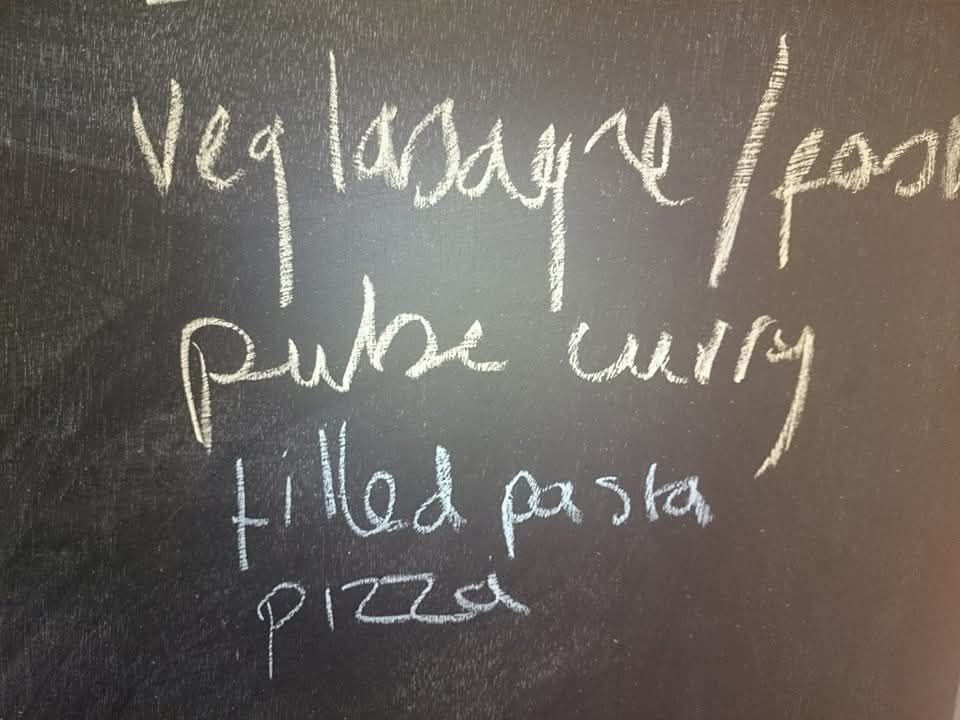 veg lasagne /
pulse curry
filled pasta
pizza